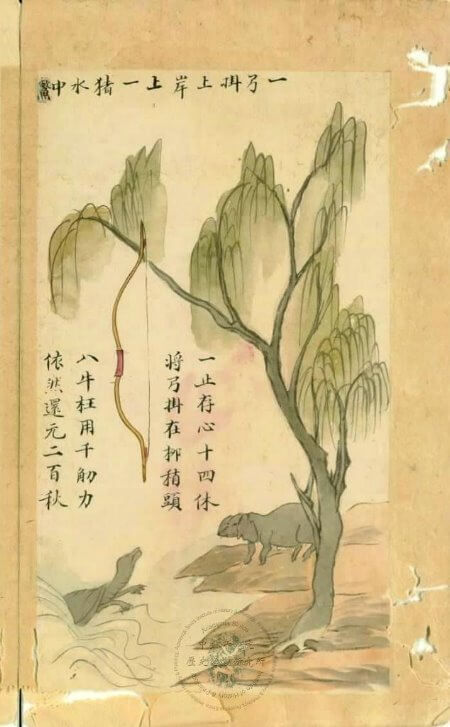 一弓掛上岸上一猪水中鱉
一止存心十四休
將弓掛在柳稍頭
八牛枉用千觔力
依然還元二百秋